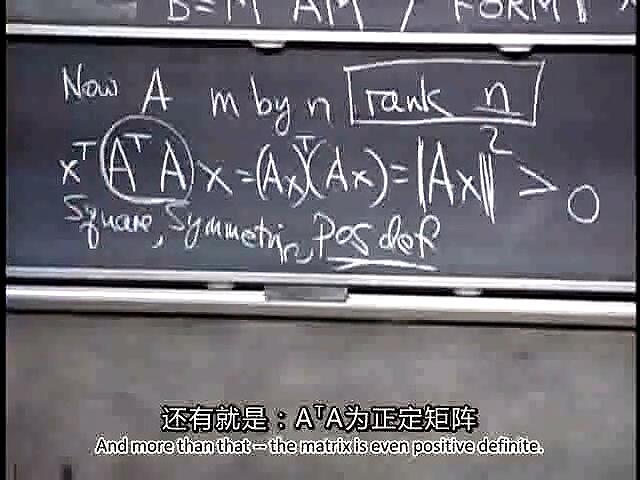 B = M⁻¹AM / FORM
Now A m by n rank n
xᵀ(AᵀA)x = (Ax)ᵀ(Ax) = ‖Ax‖² > 0
Square, Symmetric, Pos def
还有就是：AᵀA为正定矩阵
And more than that -- the matrix is even positive definite.